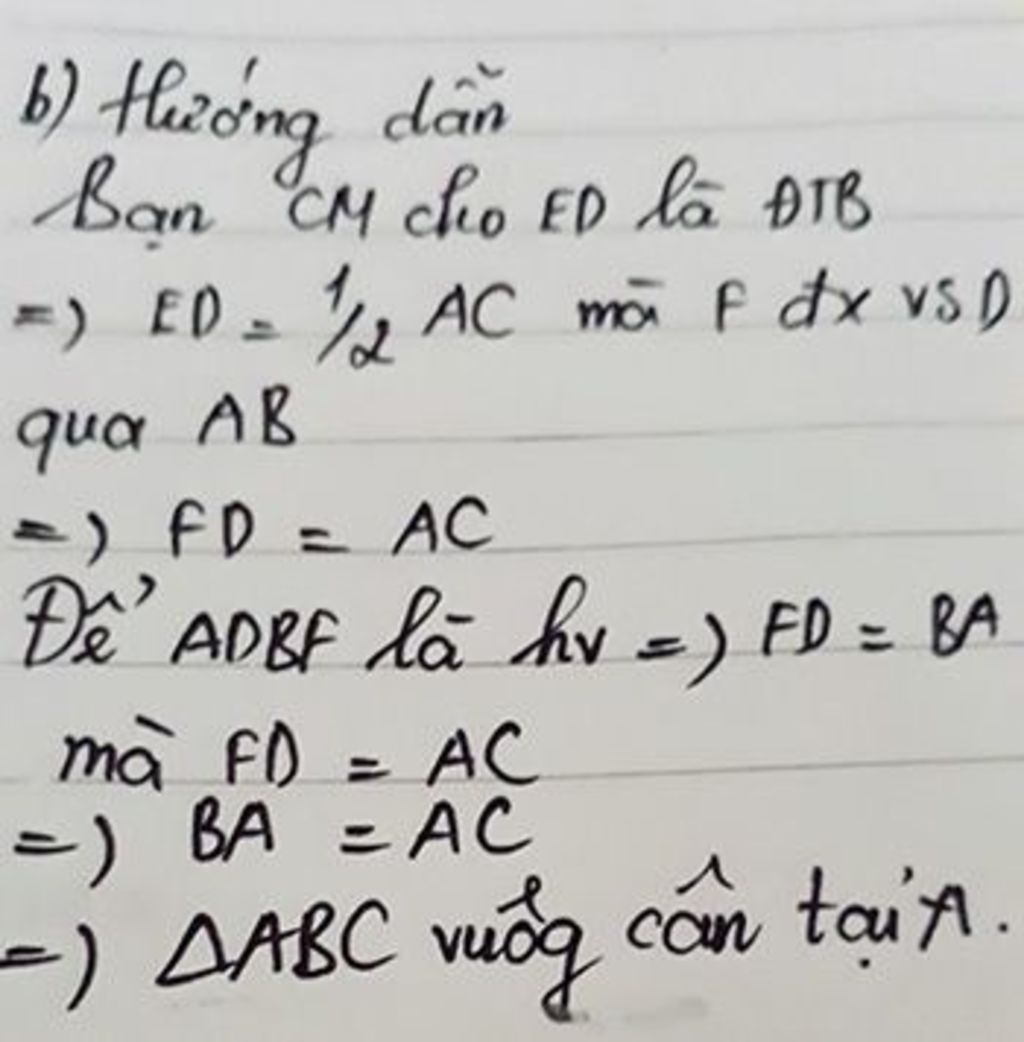 b) Hướng dẫn
Bạn CM cho ED là ĐTB
=) ED = 1/2 AC mà F đx vs D
qua AB
=) FD = AC
Để ADBF là hv =) FD = BA
mà FD = AC
=) BA = AC
=) ΔABC vuôg cân tại A.